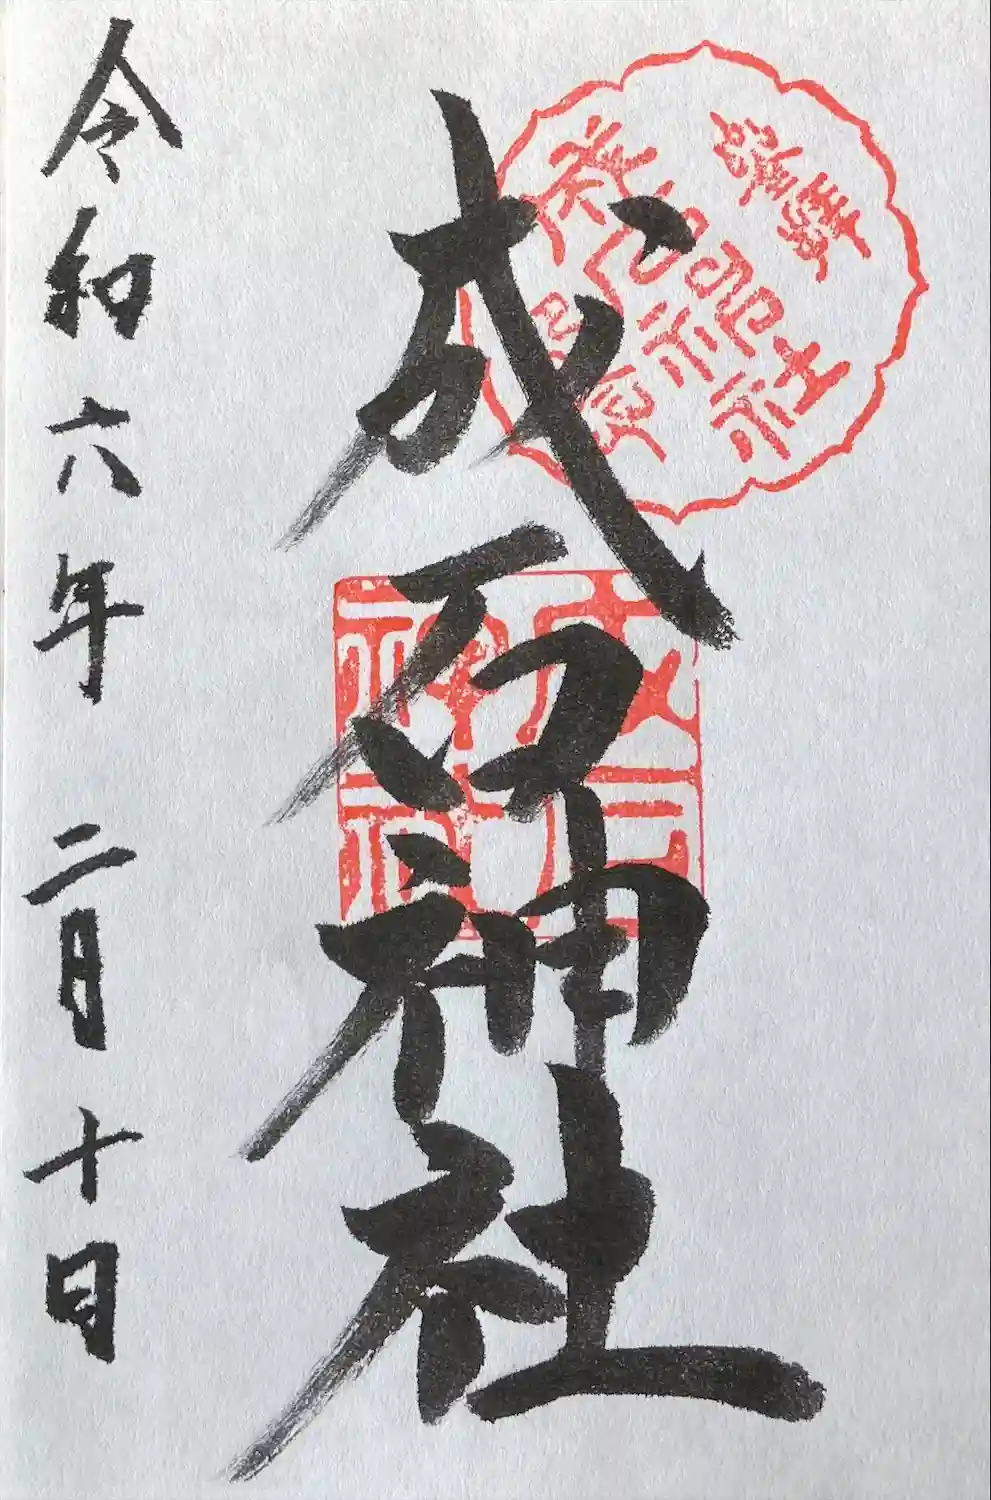 成石神社
成石
神社
令和六年 二月 十日